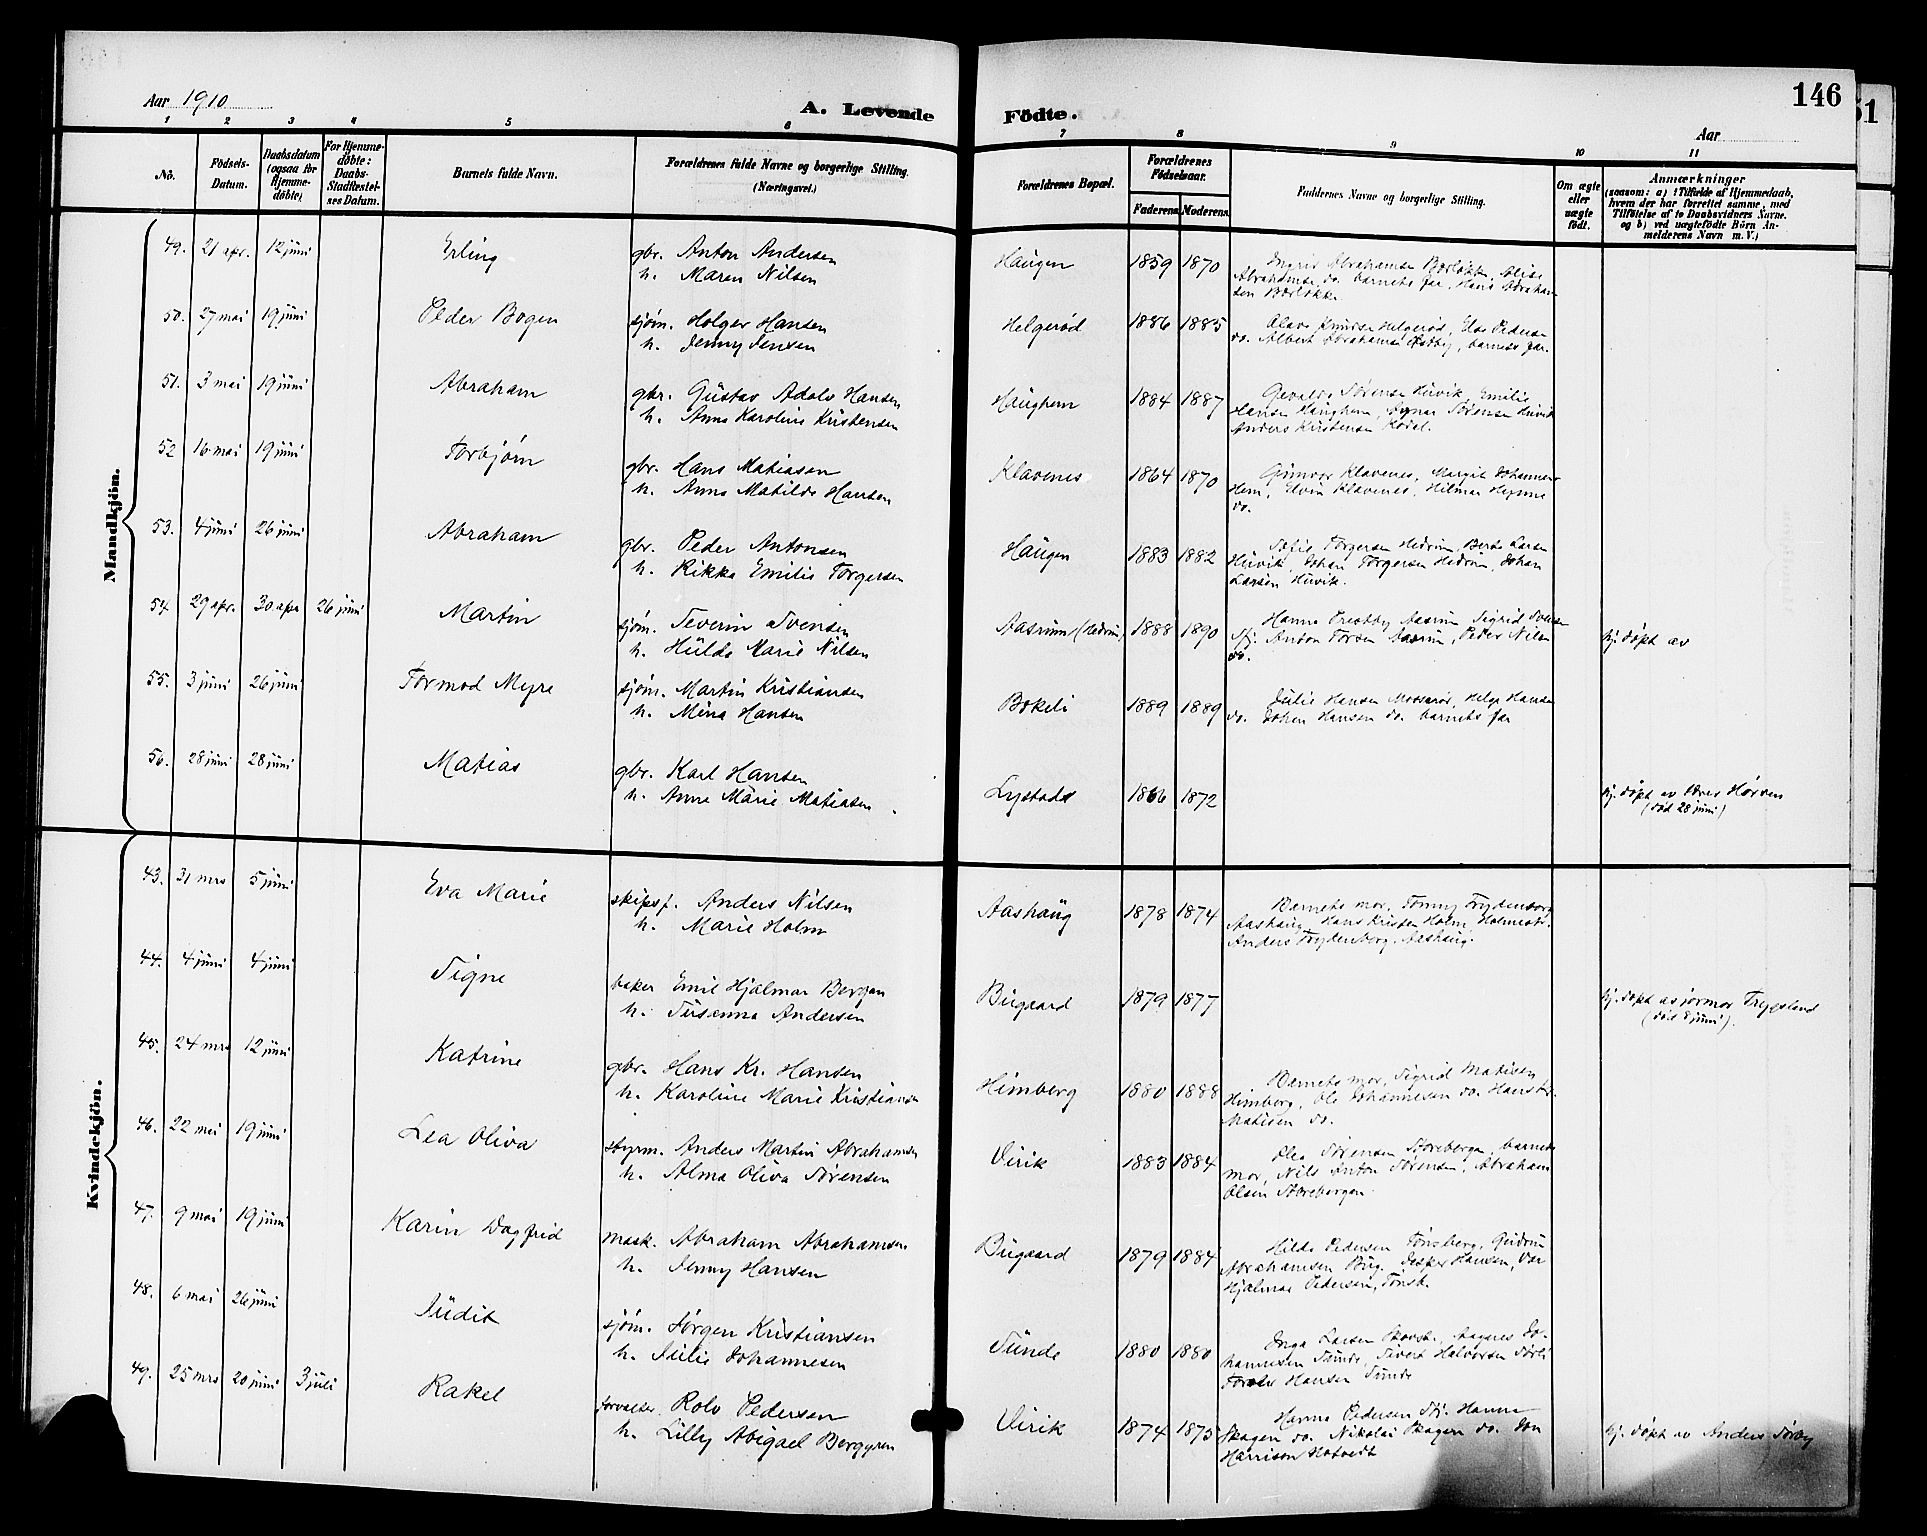 146
51
Aar 1910
A. Levende Födte.
Aar
1 2 3 4 5 6 7 8 9 10 11
No.
Födsels-Datum.
Daabsdatum (ogsaa for Hjemme-döbte)
For Hjemme-döbte: Daabs-Stadfæstel-ses Datum.
Barnets fulde Navn.
Forældrenes fulde Navne og borgerlige Stilling. (Næringsvei.)
Forældrenes Bopæl.
Forældrenes Födselsaar.
Faderens. Moderens.
Faddernes Navne og borgerlige Stilling.
Om ægte eller uægte födt.
Anmærkninger
(saasom: a) i Tilfælde af Hjemmedaab,
hvem der har forrettet samme, med
Tilföielse af to Daabsvidners Navne.
og b) ved uægtefödte Börn An-
melderens Navn m. V.)
Mandkjön.
49. 21 apr. 12 juni Erling gbr. Anton Andersen Haugen 1859 1870
h. Maren Nilsen
barnets far, Hans Abraham-
sen
50. 27 mai 19 juni Peder Bogen sjøm. Holger Hansen Helgerød 1886 1885
h. Jenny Jensen
do. Albert Abrahamsen Østby, barnets far.
51. 3 mai 19 juni Abraham gbr. Gustav Adolv Hansen Haughem 1884 1887
h. Anna Karoline Kristensen
Sørensen Huvik, Emilie
Hansen Haughem, Sørensen Huvik
Anders Kristensen Kodal.
52 16 mai 19 juni Torbjørn gbr. Hans Matiasen Klavenes 1864 1870
h. Anna Matilde Hansen
Gunvor Klavenes, Margit Johannesen
Hem, Elvin Klavenes, Hilmar
do.
53. 4 juni 26 juni Abraham gbr. Peder Antonsen Haugen 1883 1882
h. Rikka Emilie Torgersen
Sofie Torgersen Hedrum, Berta Larsen
Huvik, Johan Torgersen Hedrum, Johan
Larsen Huvik.
54. 29 apr. 30 apr 26 juni Martin sjøm. Severin Svensen Aasrum (Hedrum) 1888 1890 hj. døpt av
h. Hulda Marie Nilsen
Hanna Aasrum, Sigrid
Anton Aasrum, Peder Nilsen
do.
55. 3 juni 26 juni Tormod Myre sjøm. Martin Kristiansen Bøkeli 1889 1889
h. Mina Hansen
Julie Hansen Helga Hansen
do. Johan Hansen do. barnets far
56. 28 juni 28 juni Matias gbr. Karl Hansen Lystadd 1866 1872 hj. døpt av
h. Anne Marie Matiasen (død 28 juni)
Kvindekjön.
43. 31 mrs 5 juni Eva Marie skipsf. Anders Nilsen Aashaug 1878 1874
h. Marie Holm
Barnets mor, Fanny Frydenborg
Aashaug, Hans Kristen Holm,
Anders Frydenborg, Aashaug.
44. 4 juni 4 juni Signe baker Emil Hjalmar Bergan Bugaard 1879 1877
h. Susanna Andersen
hj. døpt av jormor Trygsland
(død 8 juni).
45. 24 mrs 12 juni Katrine gbr. Hans Kr. Hansen Himberg 1880 1888
h. Karoline Marie Kristiansen
Barnets mor, Sigrid Matisen
Himberg, Ole Johannesen do. Hans Kr.
Matisen do.
46. 22 mai 19 juni Lea Oliva styrm. Anders Martin Abrahamsen Virik 1883 1884
h. Alma Oliva Sørensen
Olea Sørensen Storebergan, barnets
mor, Nils Anton Sørensen, Abraham
Olsen Storebergan.
47. 9 mai 19 juni Karin Dagfrid mask. Abraham Abrahamsen Bugaard 1879 1884
h. Jenny Hansen
Hilda Pedersen Tønsberg, Gudrun
Abrahamsen Bug. Jesper Hansen,
Hjalmar Pedersen, Tønsb.
48. 6 mai 26 juni Judit sjøm. Jørgen Kristiansen Sunde 1880 1880
h. Julie Johannesen
Inga Larsen Agnes Jo-
hannesen Sunde, Sivert Halvorsen
Hansen Sunde
49. 25 mrs 20 juni 3 juli Rakel forvalter Rolv Pedersen Virik 1874 1875
h. Lilly Abigael Berggren
Hanna Pedersen Sfj. Hanna
Skagen do. Nikolai Skagen do. Jon
Harrison Notvedt
hj. døpt av Anders